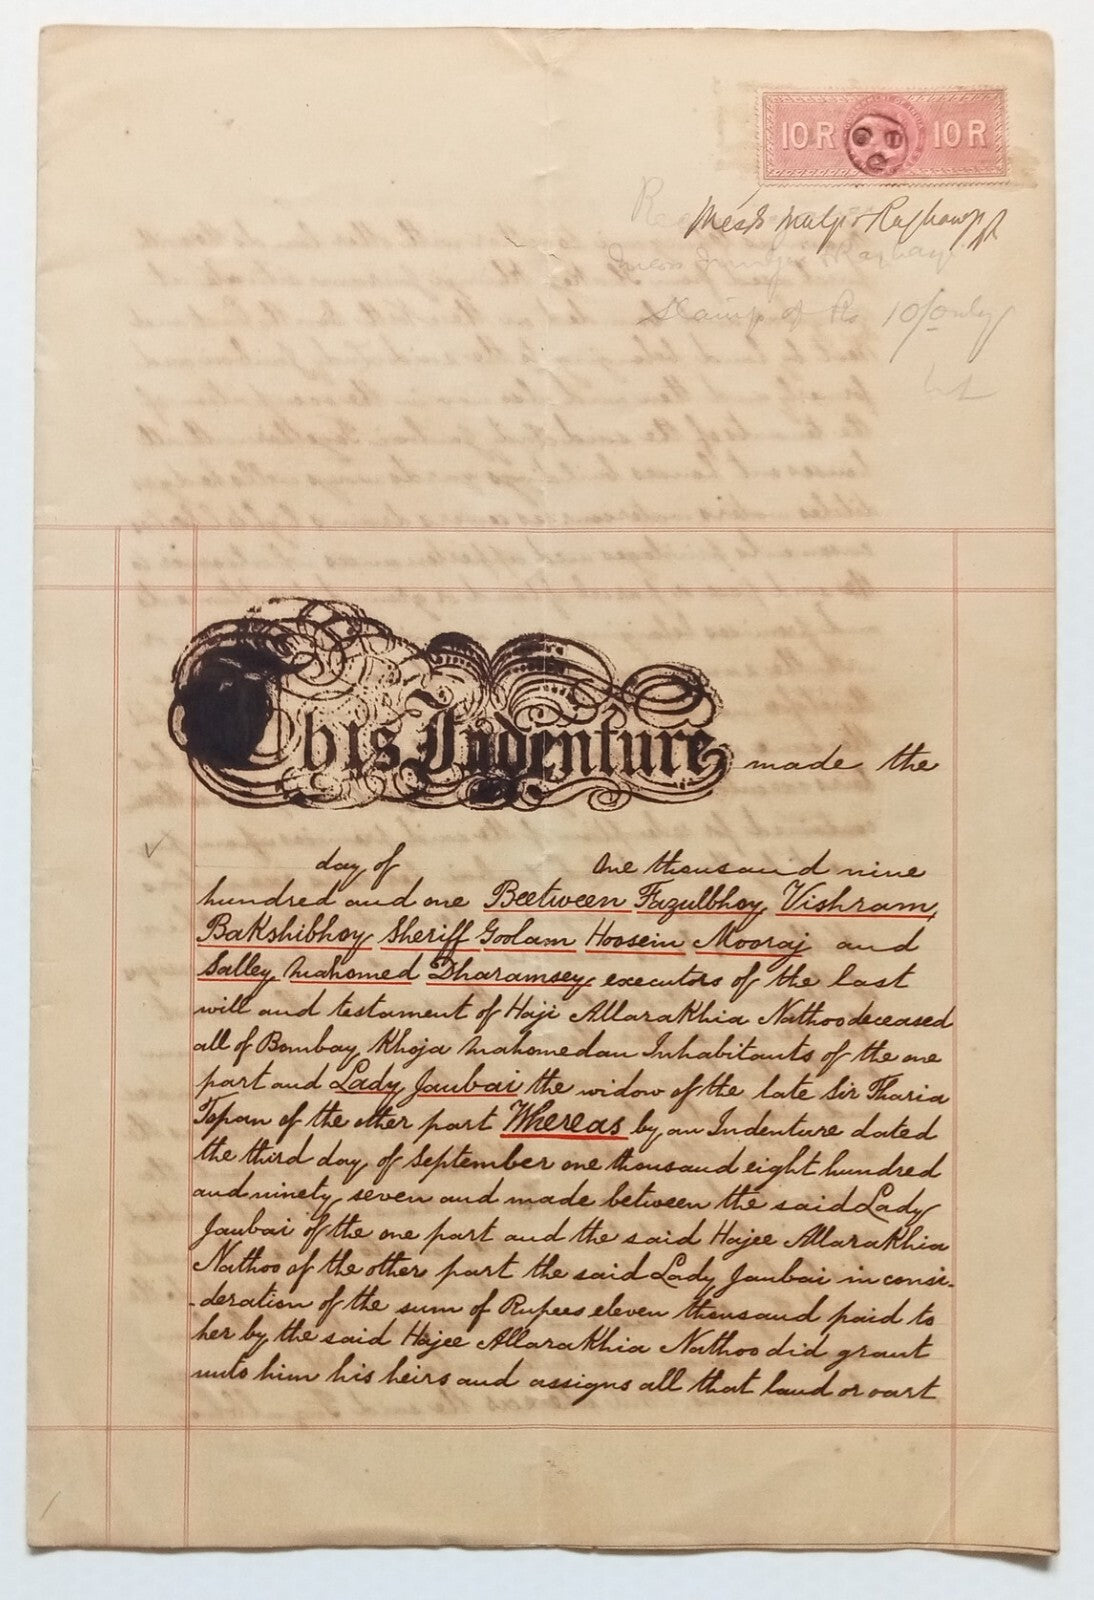 10 R 10 R
Stamp of Rs 10/0 only
This Indenture made the
day of One thousand nine
hundred and one Beetween Fazulbhoy Vishram,
Bakshibhoy Sheriff Goolam Hoosein Mooraj and
Salley Mahomed Dharamsey executors of the last
will and testament of Haji Allarakhia Nathoo deceased
all of Bombay Khoja Mahomedan Inhabitants of the one
part and Lady Jaubai the widow of the late Sir Tharia
Topan of the other part Whereas by an Indenture dated
the third day of September one thousand eight hundred
and ninety seven and made between the said Lady
Jaubai of the one part and the said Hajee Allarakhia
Nathoo of the other part the said Lady Jaubai in consi-
-deration of the sum of Rupees eleven thousand paid to
her by the said Hajee Allarakhia Nathoo did grant
unto him his heirs and assigns all that land or oart